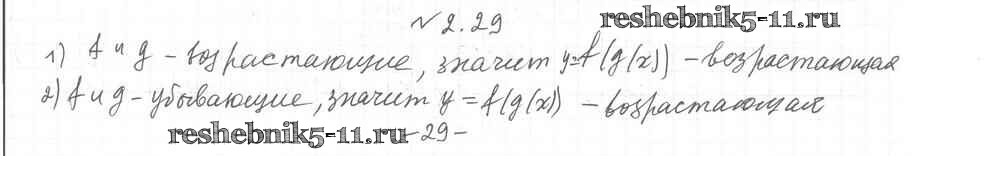 № 2.29 reshebnik5-11.ru
1) f и g - возрастающие, значит y=f(g(x)) - возрастающая
2) f и g - убывающие, значит y = f(g(x)) - возрастающая
reshebnik5-11.ru -29-